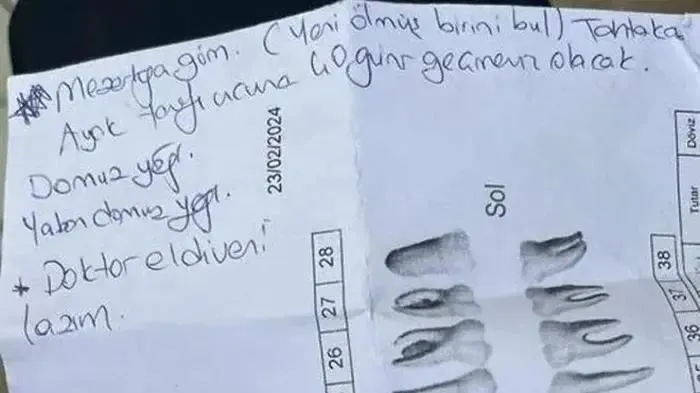 * Mezarlığa göm. (Yeni ölmüş birini bul) Tahtaka
Ayak tarafı ucuna 40 günü geçmemiş olacak.
Domuz yağı.
Yaban domuz yağı.
* Doktor eldiveni
lazım.
23/02/2024
Sol
28
27
26
38
37
36
Tutar
Döviz